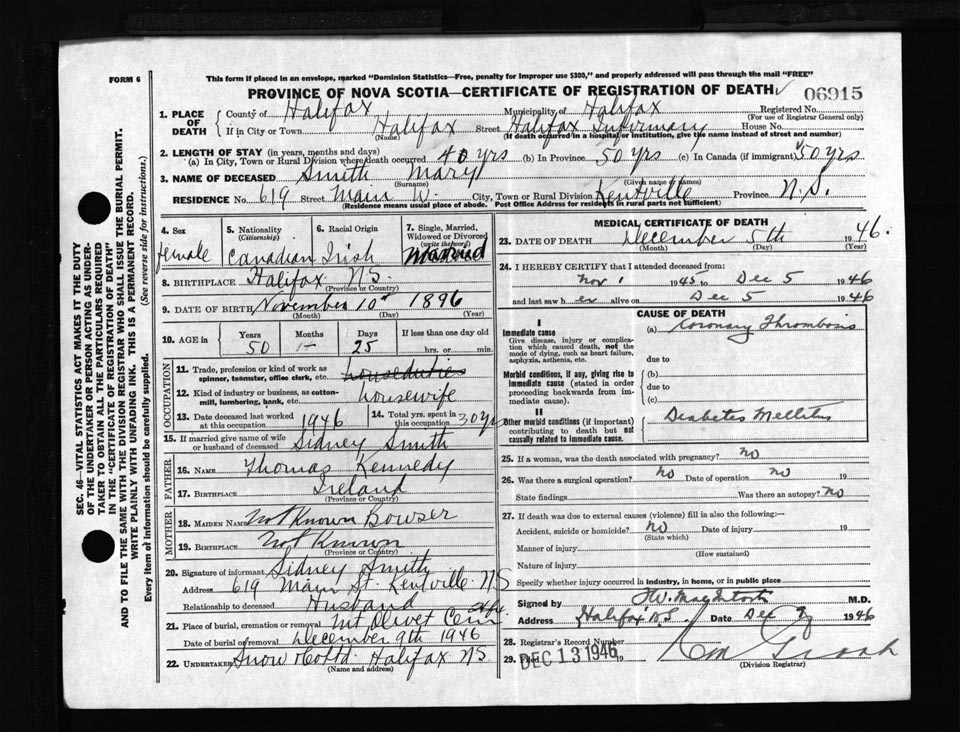 FORM 6
This form if placed in an envelope, marked "Dominion Statistics—Free, penalty for improper use $300," and properly addressed will pass through the mail "FREE"
PROVINCE OF NOVA SCOTIA—CERTIFICATE OF REGISTRATION OF DEATH
06915
1. PLACE OF DEATH
County of Halifax Municipality of Halifax Registered No.
(For use of Registrar General only)
If in City or Town Halifax Street Halifax Infirmary House No.
(Name) (If death occurred in a hospital or institution, give the name instead of street and number)
2. LENGTH OF STAY (in years, months and days)
(a) In City, Town or Rural Division where death occurred 40 yrs (b) In Province 50 yrs (c) In Canada (if immigrant) 50 yrs
3. NAME OF DECEASED Smith Mary
(Surname) (Given name or names)
RESIDENCE No. 619 Street Main W. City, Town or Rural Division Kentville Province N.S.
(Residence means usual place of abode. Post Office Address for residents in rural parts not sufficient)
4. Sex female
5. Nationality (Citizenship) Canadian
6. Racial Origin Irish
7. Single, Married, Widowed or Divorced (write the word) married
8. BIRTHPLACE Halifax N.S.
(Province or Country)
9. DATE OF BIRTH November 10 1896
(Month) (Day) (Year)
10. AGE in Years 50 Months 1- Days 25 If less than one day old hrs. or min.
OCCUPATION
11. Trade, profession or kind of work as spinner, teamster, office clerk, etc. houseduties
12. Kind of industry or business, as cotton-mill, lumbering, bank, etc. housewife
13. Date deceased last worked at this occupation 1946
14. Total yrs. spent in this occupation 30 yrs
15. If married give name of wife or husband of deceased Sidney Smith
FATHER
16. NAME Thomas Kennedy
17. BIRTHPLACE Ireland
(Province or Country)
MOTHER
18. MAIDEN NAME Not Known Bowser
19. BIRTHPLACE Not Known
(Province or Country)
20. Signature of informant Sidney Smith
Address 619 Main St. Kentville NS
Relationship to deceased Husband
21. Place of burial, cremation or removal Mt Olivet Cem
Date of burial or removal December 9th 1946
22. UNDERTAKER Snow & Co Ltd. Halifax NS.
(Name and address)
MEDICAL CERTIFICATE OF DEATH
23. DATE OF DEATH December 5th 1946.
(Month) (Day) (Year)
24. I HEREBY CERTIFY that I attended deceased from:
Nov 1 1945 to Dec 5 1946
and last saw her alive on Dec 5 1946
CAUSE OF DEATH
I
Immediate cause
Give disease, injury or complication which caused death, not the mode of dying, such as heart failure, asphyxia, asthenia, etc.
(a) Coronary Thrombosis
due to
Morbid conditions, if any, giving rise to immediate cause (stated in order proceeding backwards from immediate cause).
(b)
due to
(c)
II
Other morbid conditions (if important) contributing to death but not causally related to immediate cause.
Diabetes Mellitus
25. If a woman, was the death associated with pregnancy? no
26. Was there a surgical operation? no Date of operation no 19
State findings Was there an autopsy? no
27. If death was due to external causes (violence) fill in also the following:—
Accident, suicide or homicide? no Date of injury 19
(State which)
Manner of injury
(How sustained)
Nature of injury
Specify whether injury occurred in industry, in home, or in public place
Signed by M.D.
Address Halifax N.S. Date Dec 1946
28. Registrar's Record Number
29. DEC 13 1946 19
(Division Registrar)
SEC. 46—VITAL STATISTICS ACT MAKES IT THE DUTY
OF THE UNDERTAKER OR PERSON ACTING AS UNDER-
TAKER TO OBTAIN ALL THE PARTICULARS REQUIRED
IN THE "CERTIFICATE OF REGISTRATION OF DEATH"
AND TO FILE THE SAME WITH THE DIVISION REGISTRAR WHO SHALL ISSUE THE BURIAL PERMIT.
WRITE PLAINLY WITH UNFADING INK. THIS IS A PERMANENT RECORD.
Every item of Information should be carefully supplied. (See reverse side for instructions.)